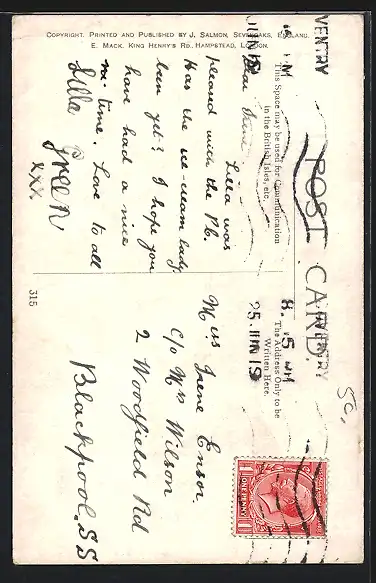 COPYRIGHT. PRINTED AND PUBLISHED BY J. SALMON, SEVENOAKS, ENGLAND.
E. MACK. KING HENRY'S RD., HAMPSTEAD, LONDON.
POST CARD.
This Space may be used for Communication
in the British Isles, etc.
The Address Only to be
Written Here.
VENTRY
8. 15 PM
25 JUN 19
VENTRY
ONE PENNY
5c,
Dear
Lilla was
pleased with the P.C.
Has the ice-cream lady
been yet? I hope you
have had a nice
time. Love to all
Lilla Green
xxx.
Miss Irene Ensor.
c/o Mrs Wilson
2 Woodfield Rd
Blackpool. S.S
315